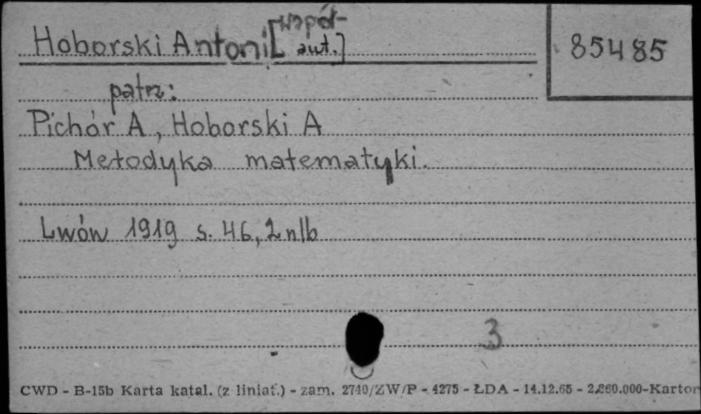 Hoborski Antoni [współ-
aut.]
85485
patrz:
Pichór A, Hoborski A
Metodyka matematyki.
Lwów 1919 s. 46, 2 nlb
3
CWD - B-15b Karta katal. (z liniat.) - zam. 2740/ZW/P - 4275 - ŁDA - 14.12.65 - 2.860.000-Karton